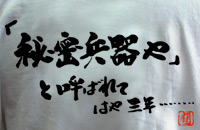 「秘密兵器や」
と呼ばれて
はや三年………